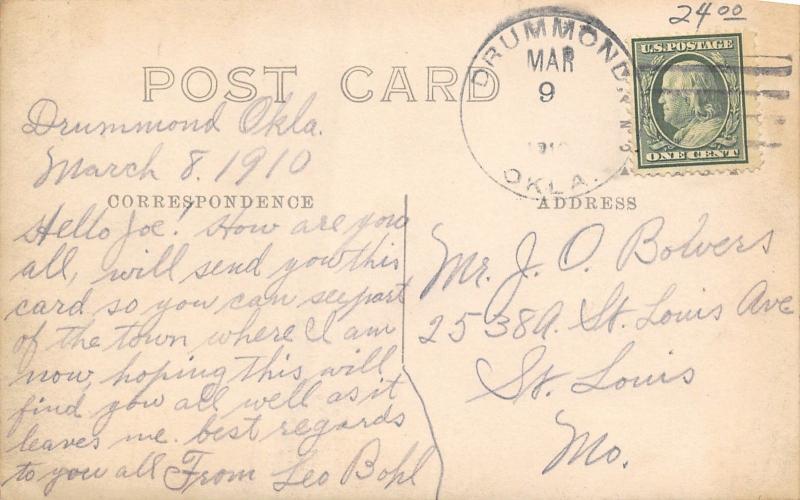 24 00
DRUMMOND,
MAR
9
1910
OKLA.
U.S. POSTAGE
ONE CENT
POST CARD
Drummond Okla.
March 8. 1910
CORRESPONDENCE
Hello Joe! How are you
all, will send you this
card so you can see part
of the town where I am
now, hoping this will
find you all well as it
leaves me. best regards
to you all From Leo Bohl
ADDRESS
Mr. J. O. Bowers
2538A. St. Louis Ave
St. Louis
Mo.